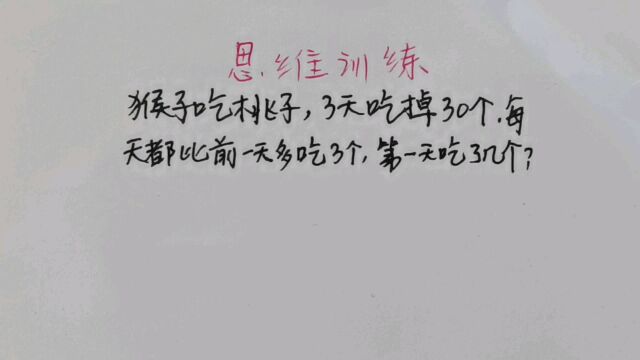 思维训练
猴子吃桃子，3天吃掉30个，每
天都比前一天多吃3个，第一天吃了几个？